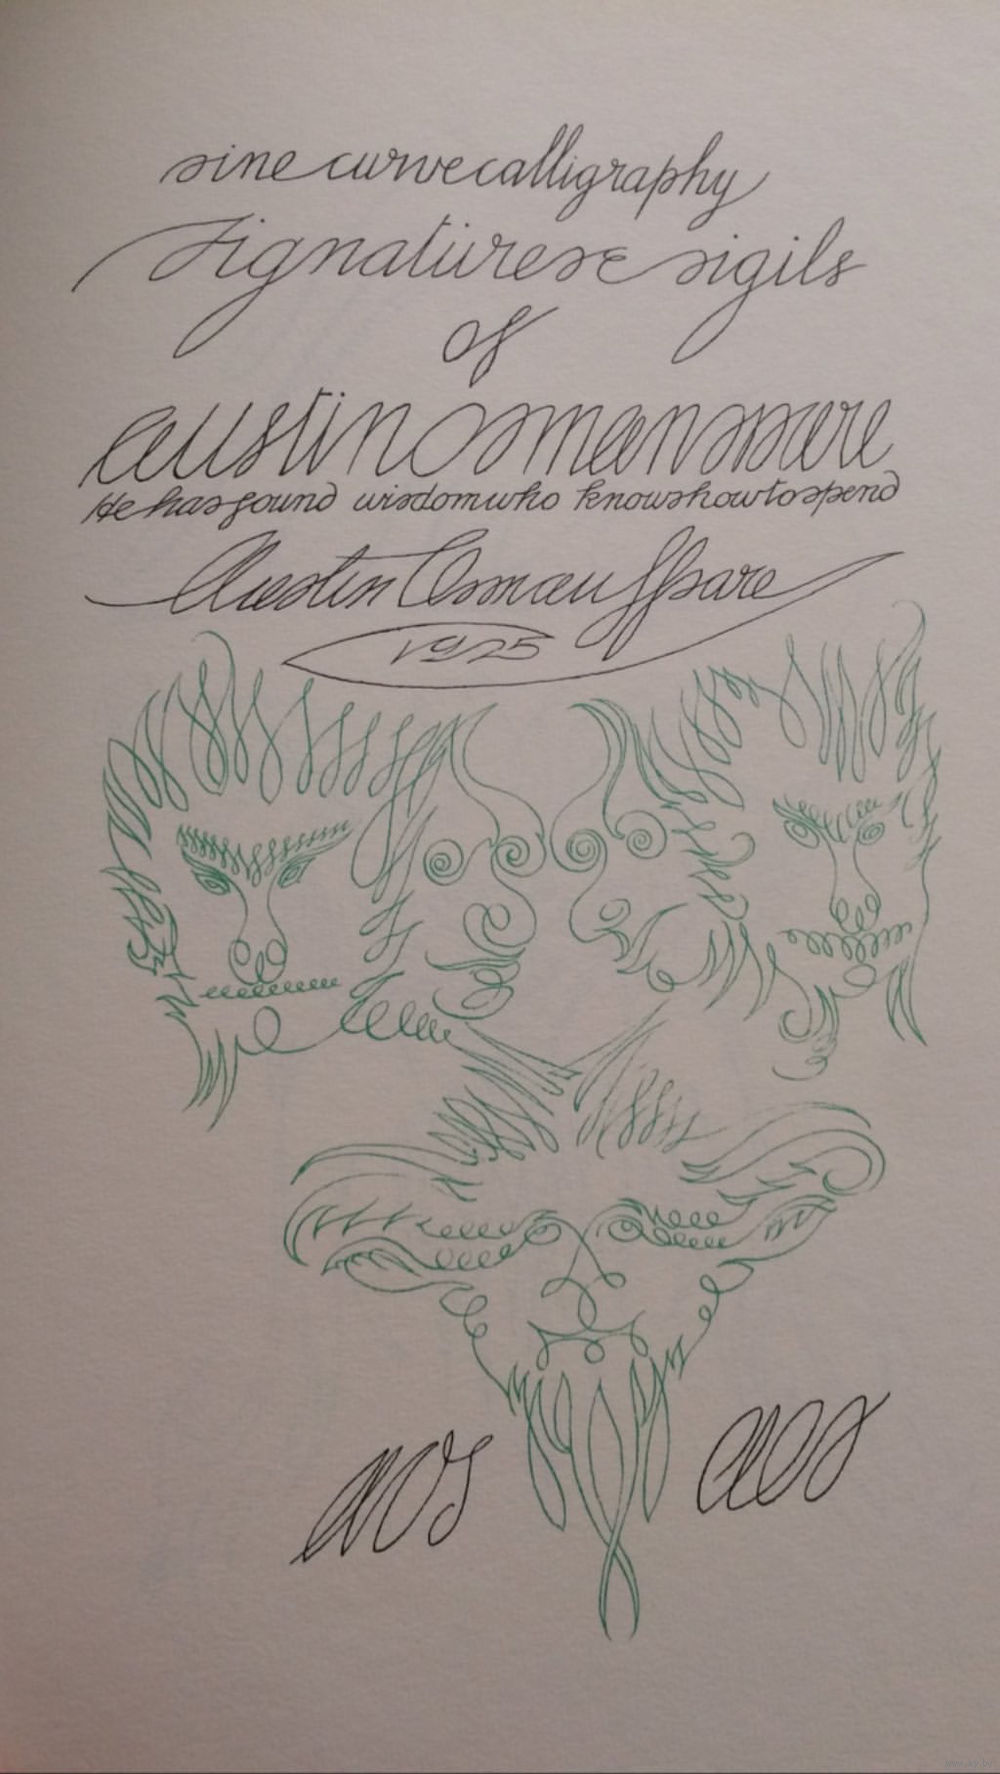 sine curve calligraphy
Signatures & sigils
of
austin osman spare
He has found wisdom who knows how to spend
Austin Osman Spare
1925
aos aos